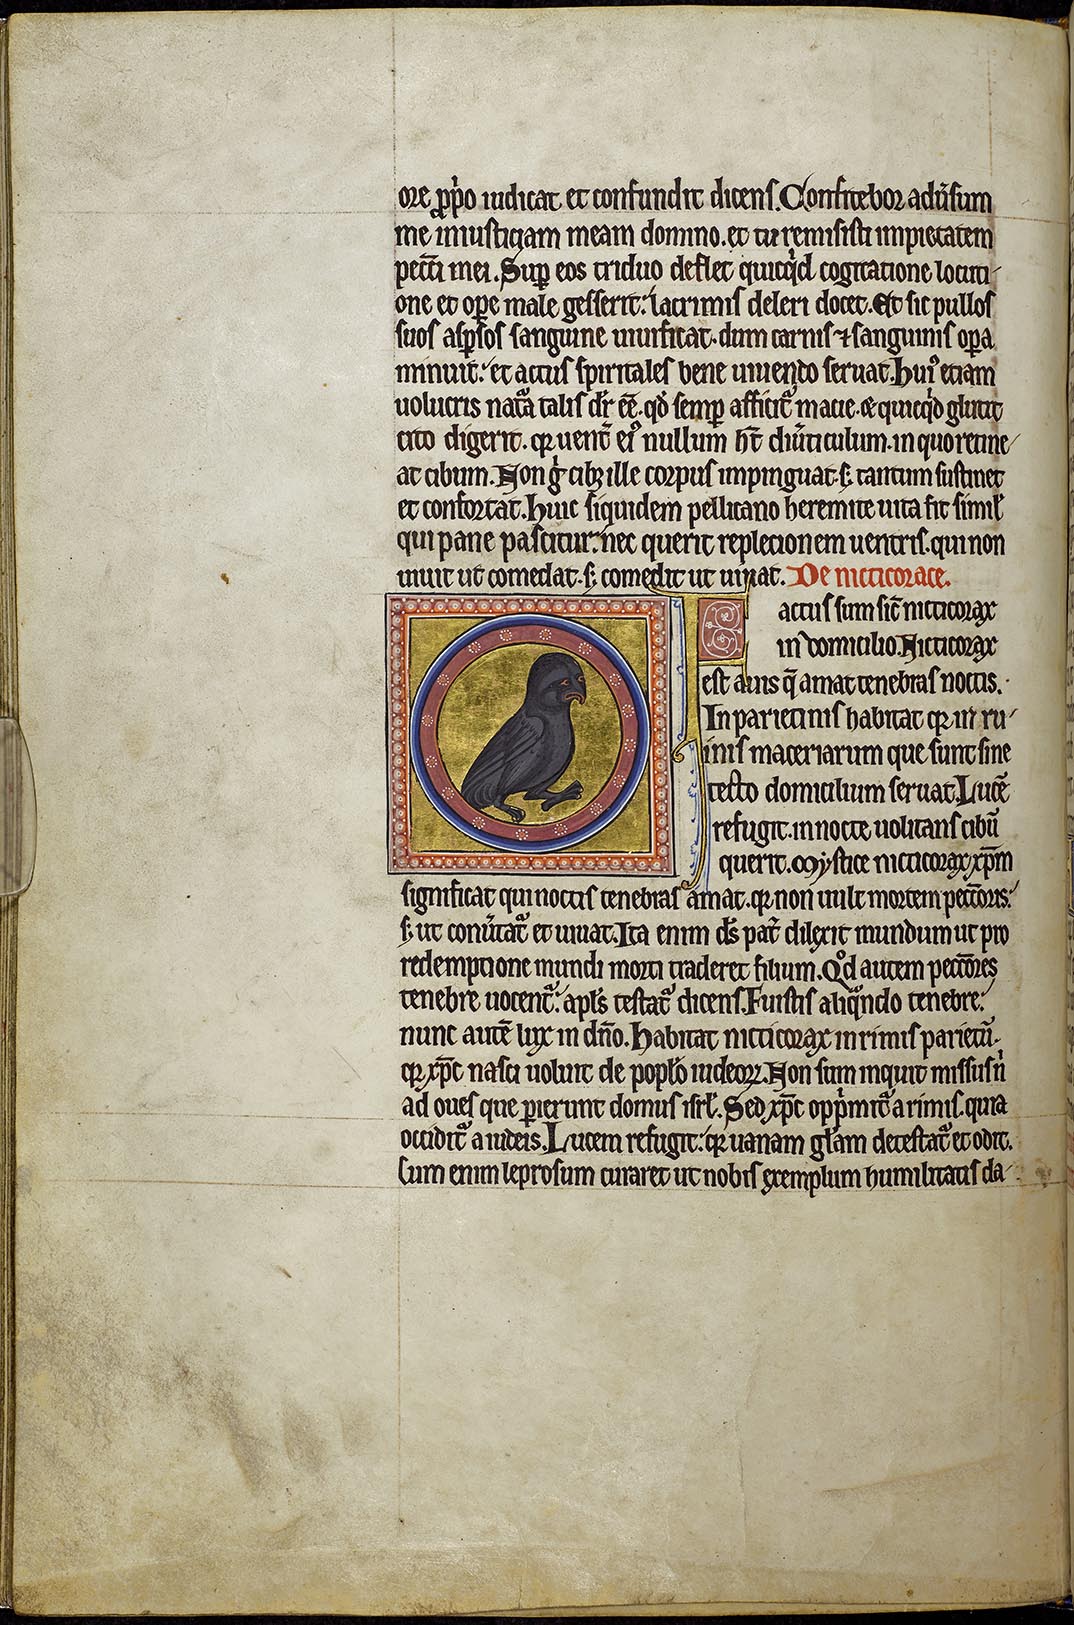 ore ꝓp̍o iudicat et confundit dicens. Confitebor adũsum
me iniusticiam meam domino. et tu remisisti impietatem
pecc̃i mei. Sup̱ eos triduo deflet quicq̍d cogitatione locuti-
one et op̱e male gesserit: lacrimis deleri docet. Et sic pullos
suos asp̱sos sanguine uiuificat. dum carnis ⁊ sanguinis op̱a
minuit: et actus spiritales bene uiuendo seruat. Huiꝰ etiam
uolucris nat̃a talis dr̃ eẽ. qd̃ semp̱ afficit᷑ macie. & quicq̍d glutit
cito digerit. qꝛ uent̃ eiꝰ nullum ht̃ diũticulum. in quo retine-
at cibum. Non g̍ cibꝫ ille corpus impinguat. s; tantum sustinet
et confortat. Huic siquidem pellicano heremite uita fit simil̕
qui pane pascitur: nec querit replecionem uentris. qui non
uiuit ut comedat. s; comedit ut uiuat. De nicticorace.
Factus sum sic̃ nicticorax
in domicilio. Nicticorax
est auis q̃ amat tenebras noctis.
In parietinis habitat qꝛ in ru-
inis maceriarum que sunt sine
tecto domicilium seruat. Lucẽ
refugit. in nocte uolitans cibũ
querit. Mystice nicticorax xp̃m
significat qui noctis tenebras amat. qꝛ non uult mortem pecc̃oris:
s; ut conũtat᷑ et uiuat. Ita enim ds̃ pat̃ dilexit mundum ut pro
redemptione mundi morti traderet filium. Qd̕ autem pecc̃ores
tenebre uocent᷑: apl̕s testat᷑ dicens. Fuistis aliq̃ndo tenebre:
nunc autẽ lux in dño. Habitat nicticorax in rimis parietũ.
qꝛ xp̃c nasci uoluit de popl̕o iudeoꝝ. Non sum inquit missus n̍
ad oues que p̱ierunt domus isrl̕. Sed xp̃c opp̍mit᷑ a rimis. quia
occidit᷑ a iudeis. Lucem refugit: qꝛ uanam gl̃am detestat᷑ et odit.
Cum enim leprosum curaret ut nobis exemplum humilitatis da-